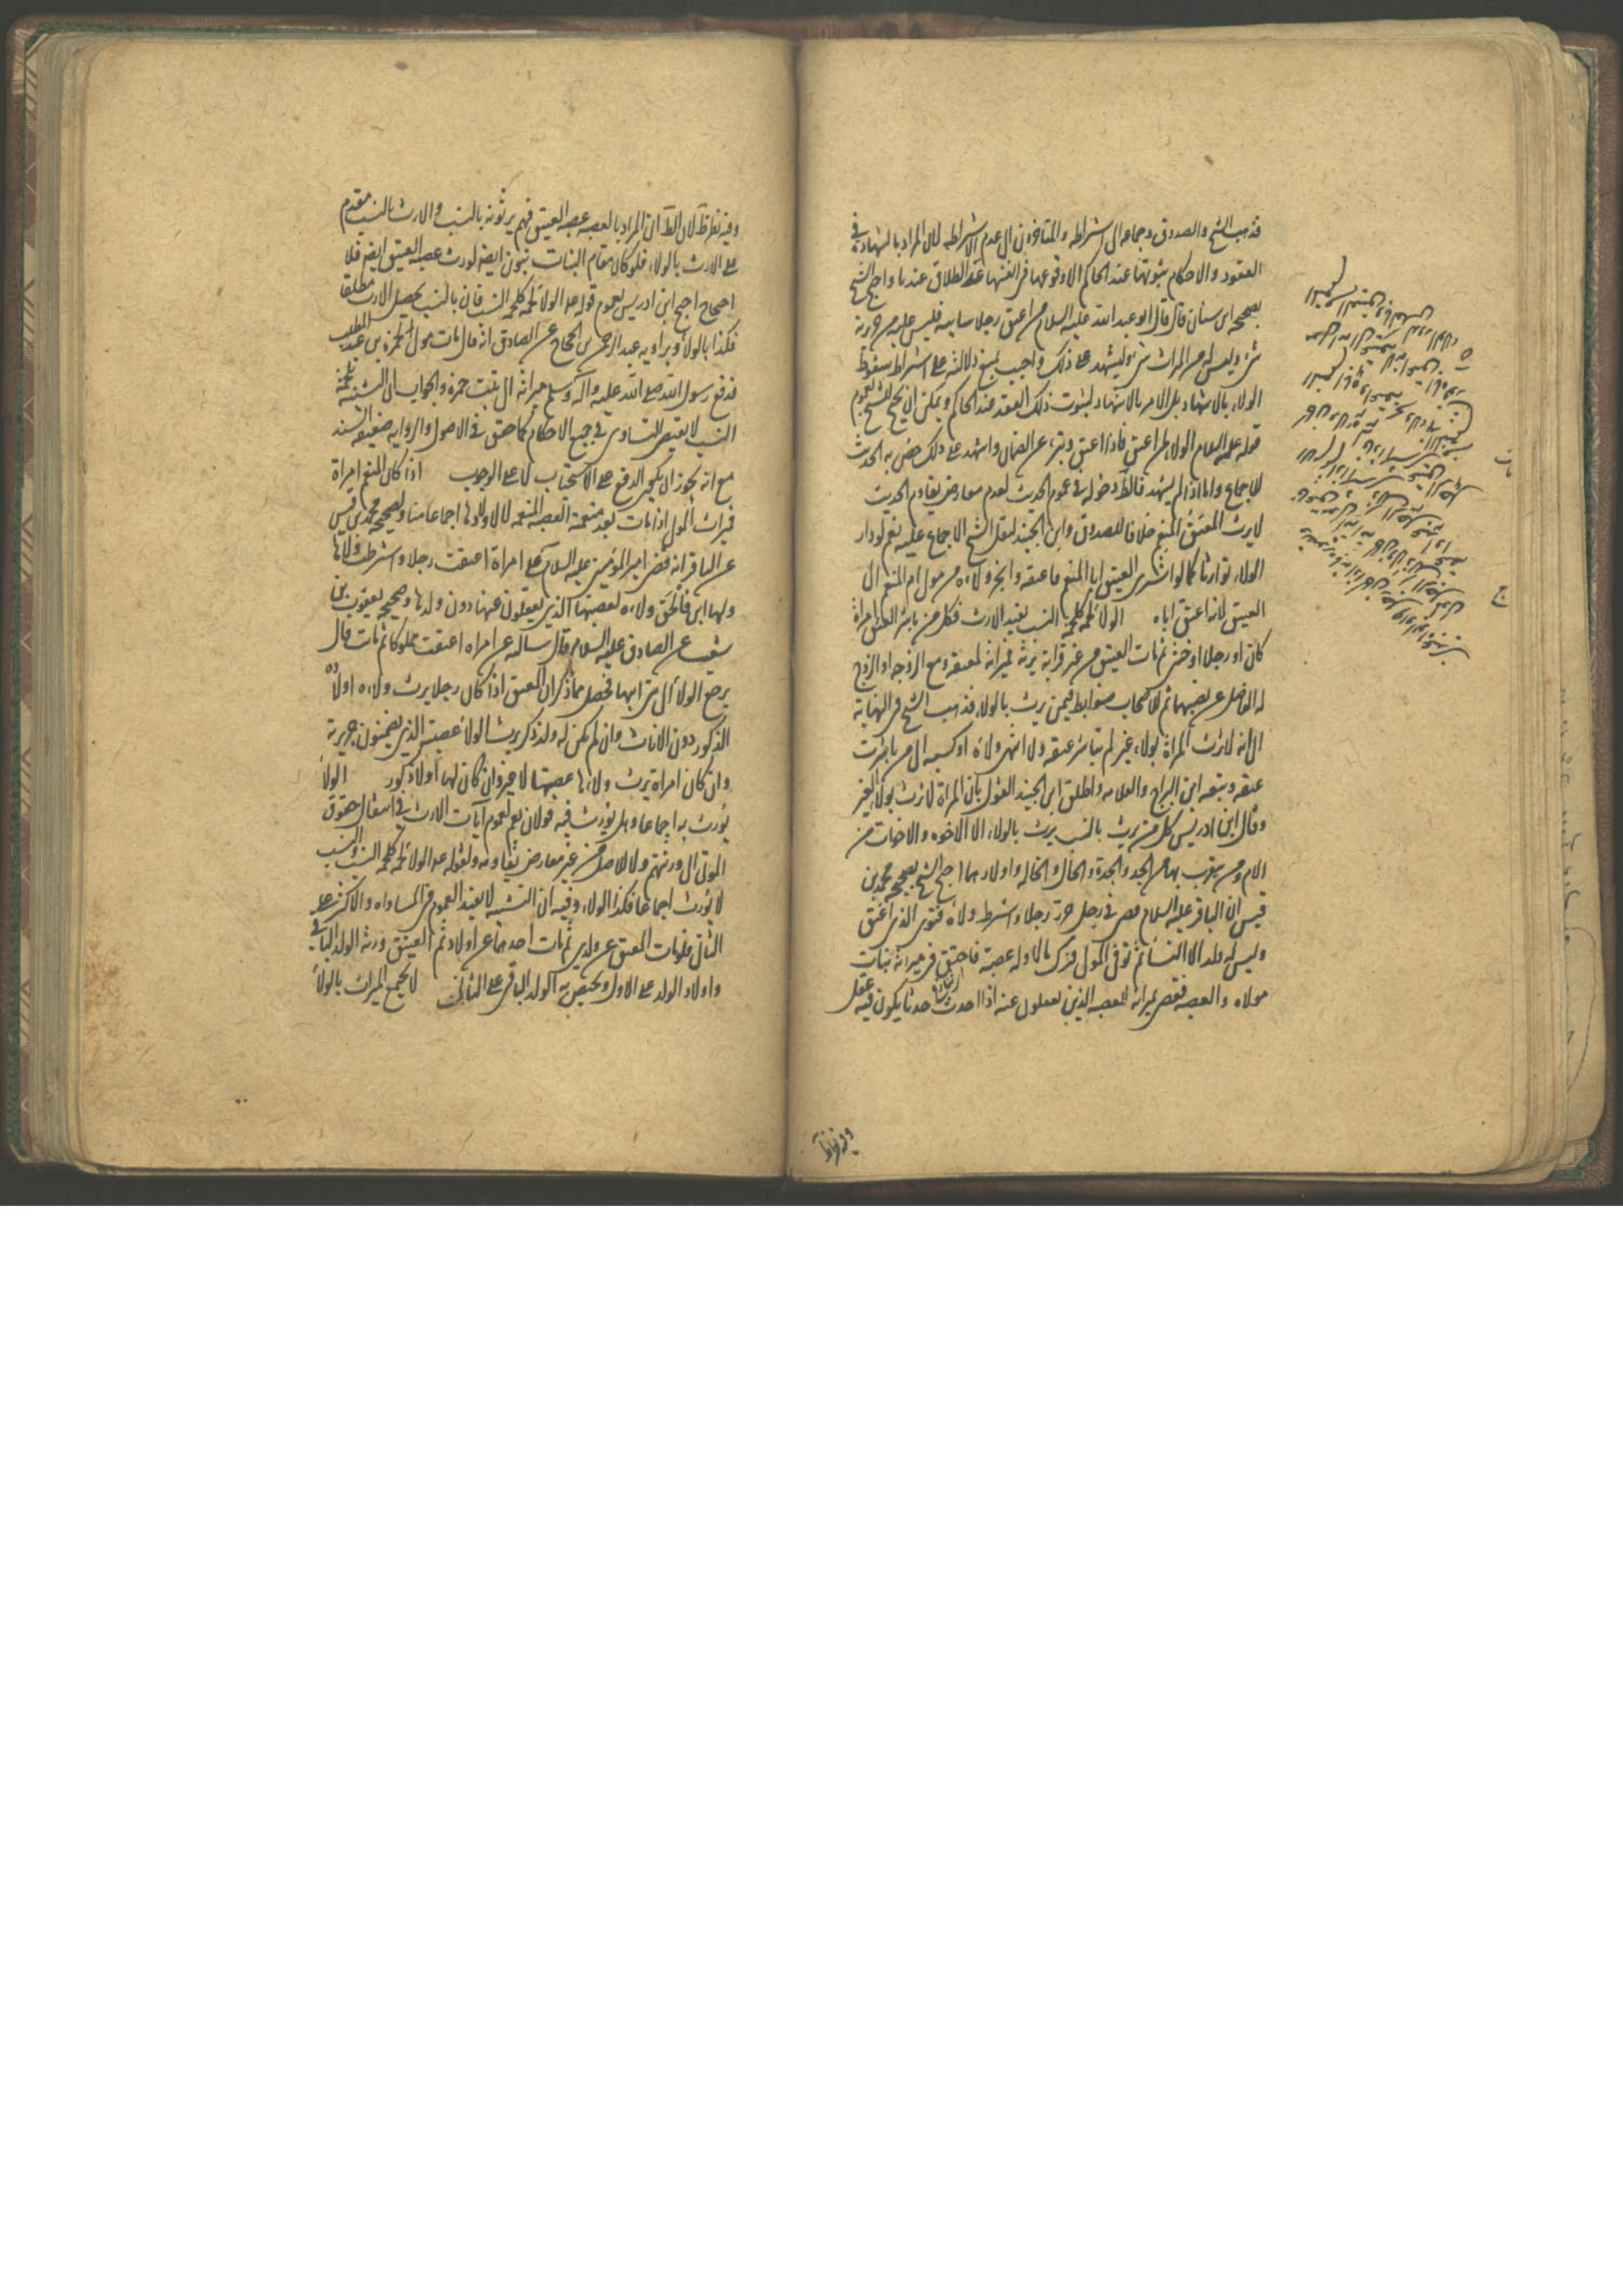 فذهب الشيخ والصدوق وجماعه الى اشتراطه والمتاخرون الى عدم الاشتراطه لان المراد بالشهادة في
العقود والاحكام ثبوتها عند الحاكم لا وقوعها في انفسها عدا الطلاق عندنا واحتج الشيخ
بصحيحه ابن سنان قال قال ابو عبد الله عليه السلام من اعتق رجلا سايبه فليس عليه من جريرته
شئ وليس له من الميراث شئ وليشهد على ذلك واجيب بمنع دلالته على اشتراط سقوط
الولاء بالاشهاد بل الامر بالاشهاد لثبوت ذلك العقد عند الحاكم ويمكن ان يحتج للشيخ بعموم
قوله عليه السلام الولاء لمن اعتق فاذا اعتق وتبرء عن الضمان واشهد على ذلك خص به الحديث
للاجماع واما اذا لم يشهد فالظ دخوله في عموم الحديث لعدم معارض يقاوم الحديث
لا يرث المعتق المنعم خلافا للصدوق وابن الجنيد لنقل الشيخ الاجماع عليه نعم لو دار
الولاء توارثا كما لو اشترى العتيق ابا المنعم فاعتقه وانجر ولاءه من مولى ام المنعم الى
العتيق لانه اعتق اباه الولاء لحمة كلحمة النسب يفيد الارث فكل من باشر العتق امراة
كان او رجلا او خنثى ثم مات العتيق من غير قرابة يرثه فميراثه لمعتقه ومع الزوجه او الزوج
له الفاضل عن نصيبهما ثم للاصحاب ضوابط فيمن يرث بالولاء فذهب الشيخ في النهاية
الى انه لا ترث المراة بولاء غير لم تباشر عتقه ولا انتهى ولاءه او كسبه الى من باشرت
عتقه وتبعه ابن البراج والعلامه واطلق ابن الجنيد القول بان المراة لا ترث بولاء الغير
وقال ابن ادريس كل من يرث بالنسب يرث بالولاء الا الاخوه والاخوات من
الام ومن يتقرب بها من الجد والجدة والخال والخاله واولادهما احتج الشيخ بصحيحه محمد بن
قيس ان الباقر عليه السلام قضى في رجل حرر رجلا واشترط ولاءه فتوفى الذي اعتق
وليس له ولد الا النساء ثم توفى المولى فترك مالا وله عصبة فاحتق في ميراثه بنات
مولاه والعصبه فقضى بميراثه للعصبه الذين يعقلون عنه اذا احدث حدثا يكون فيه عقل
وفيه نظر ظ
وفيه نظر ظ لان الظ ان المراد بالعصبه عصبه العتيق فهم يرثونه بالنسب والارث بالنسب مقدم
على الارث بالولاء فلو كان مقام البنات بنون ايضا لورث عصبه العتيق ايضا فلا
احتجاج احتج ابن ادريس بعموم قوله عم الولاء لحمة كلحمة النسب فان بالنسب يحصل الارث مطلقا
فكذا بالولاء وبراويه عبد الرحمن بن الحجاج عن الصادق انه قال مات مولى لحمزة بن عبد المطلب
فدفع رسول الله صلى الله عليه وآله وسلم ميراثه الى بنت حمزه والجواب ان التشبيه بلحمة
النسب لا يقتضى التساوي في جميع الاحكام كما حقق في الاصول والروايه ضعيفه السند
مع انه يجوز ان يكون الدفع على الاستحباب لا على الوجوب اذا كان المنعم امراة
فميراث المولى اذا مات بعد منعمة لعصبه المنعمه لا لاولادها اجماعا منا ولصحيحه محمد بن قيس
عن الباقر انه قضى امير المؤمنين عليه السلام على امراة اعتقت رجلا واشترطت ولاءه
ولها ابن فالحق ولاءه لعصبتها الذين يعقلون عنها دون ولدها وصحيحه يعقوب بن
شعيب عن الصادق عليه السلام وقال سالته عن امراه اعتقت مملوكا ثم ماتت قال
يرجع الولاء الى بنى ابيها فحصل مما ذكر ان المعتق اذا كان رجلا يرث ولاءه اولاده
الذكور دون الاناث وان لم يكن له ولد ذكر يرث الولاء عصبته الذين يضمنون جريرته
وان كان امراة يرث ولاءها عصبتها لا غير وان كان لها اولاد ذكور الولاء
يورث به اجماعا وهل يورث فيه قولان نعم لعموم آيات الارث في انتقال حقوق
الموتى الى ورثتهم ولا للاصل من غير معارض يقاومه ولقوله عم الولاء لحمة كلحمة النسب والنسب
لا يورث اجماعا فكذا الولاء وفيه ان التشبيه لا يفيد العموم في المساواه والاكثر على
الثاني فلو مات المعتق عن ولدين ثم مات احدهما عن اولاد ثم العتيق ورثه الولد الباقي
واولاد الولد على الاول ويختص به الولد الباقى على الثاني لا يجمع الميراث بالولاء